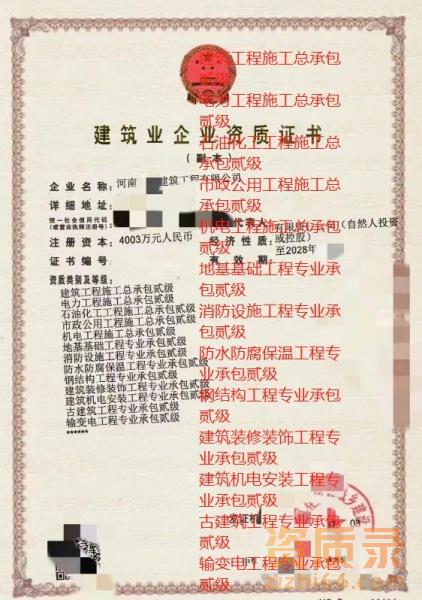 建筑工程施工总承包
贰级
电力工程施工总承包
贰级
石油化工工程施工总
承包贰级
市政公用工程施工总
承包贰级
机电工程施工总承包
贰级
地基基础工程专业承
包贰级
消防设施工程专业承
包贰级
防水防腐保温工程专
业承包贰级
钢结构工程专业承包
贰级
建筑装修装饰工程专
业承包贰级
建筑机电安装工程专
业承包贰级
古建筑工程专业承包
贰级
输变电工程专业承包
贰级
建筑业企业资质证书
(副本)
企业名称:河南 建筑工程有限公司
详细地址:
统一社会信用代码
(或营业执照注册号):
代表人
注册资本:4003万元人民币
经济性质:有限责任公司(自然人投资
或控股)
证书编号:
有效期:至2028年
资质类别及等级:
建筑工程施工总承包贰级
电力工程施工总承包贰级
石油化工工程施工总承包贰级
市政公用工程施工总承包贰级
机电工程施工总承包贰级
地基基础工程专业承包贰级
消防设施工程专业承包贰级
防水防腐保温工程专业承包贰级
钢结构工程专业承包贰级
建筑装修装饰工程专业承包贰级
建筑机电安装工程专业承包贰级
古建筑工程专业承包贰级
输变电工程专业承包贰级
******
发证机
资质录
zizhi66.com